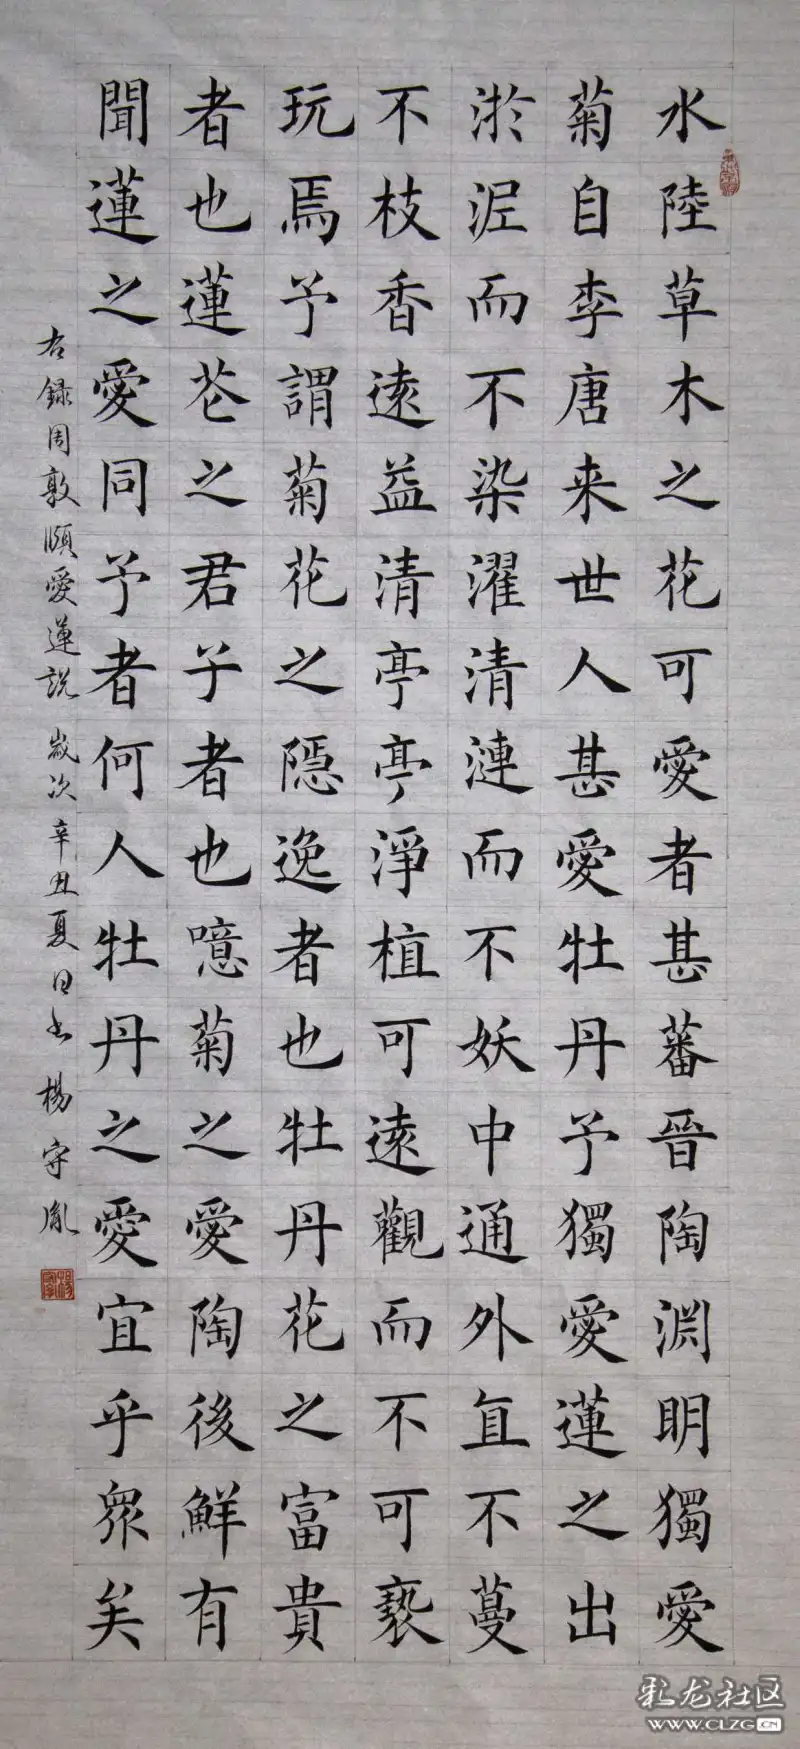 水陸草木之花可愛者甚蕃晉陶渊明獨愛
菊自李唐来世人甚愛牡丹予獨愛蓮之出
淤泥而不染濯清漣而不妖中通外直不蔓
不枝香遠益清亭亭淨植可遠觀而不可褻
玩焉予謂菊花之隱逸者也牡丹花之富貴
者也蓮花之君子者也噫菊之愛陶後鮮有
聞蓮之愛同予者何人牡丹之愛宜乎衆矣
右録周敦頤愛蓮説 歲次辛丑夏日书 楊守胤
彩龙社区
WWW.CLZG.CN